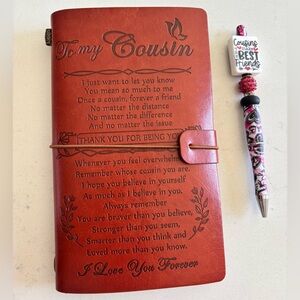 To my Cousin
I just want to let you know
You mean so much to me
Once a cousin, forever a friend
No matter the distance
No matter the difference
And no matter the issue
THANK YOU FOR BEING YOU
Whenever you feel overwhelmed
Remember whose cousin you are.
I hope you believe in yourself
As much as I believe in you.
Always remember
You are braver than you believe,
Stronger than you seem,
Smarter than you think and
Loved more than you know.
I Love You Forever
Cousins
BEST
friends